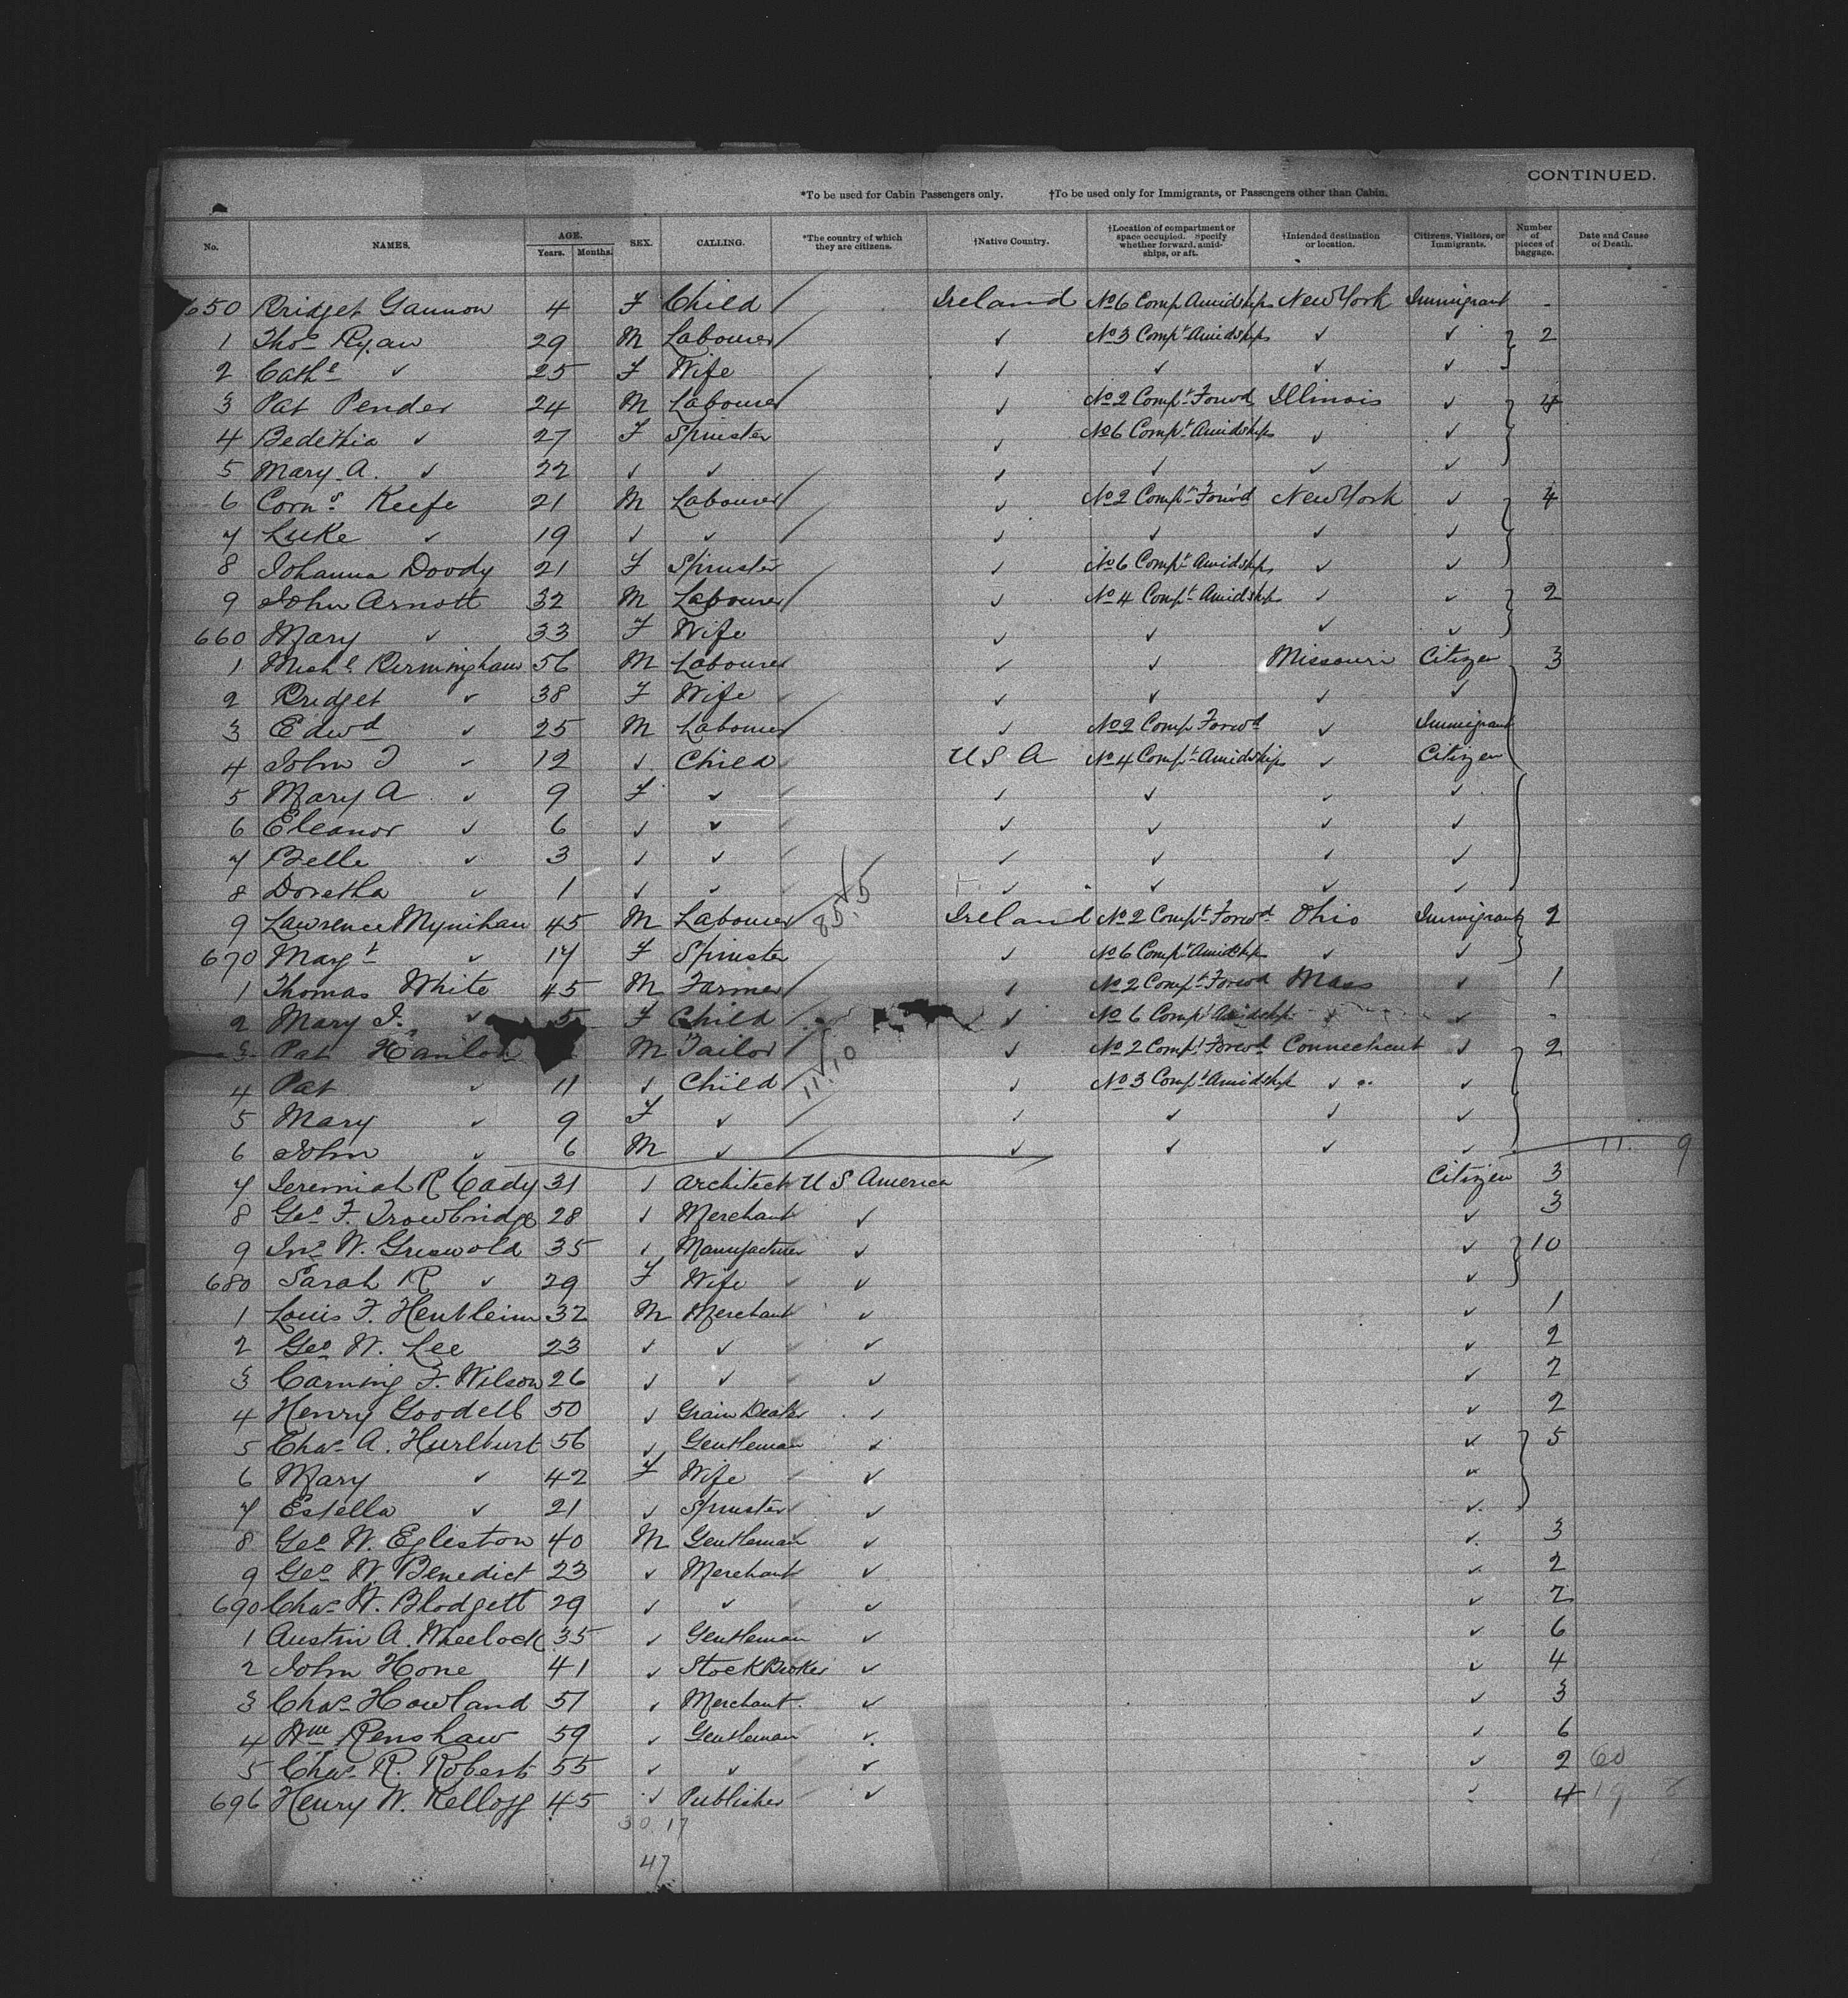 CONTINUED.
*To be used for Cabin Passengers only. †To be used only for Immigrants, or Passengers other than Cabin.
No. NAMES. AGE. Years. Months. SEX. CALLING. *The country of which they are citizens. †Native Country. †Location of compartment or space occupied. Specify whether forward, amidships, or aft. †Intended destination or location. Citizens, Visitors, or Immigrants. Number of pieces of baggage. Date and Cause of Death.
650 Bridget Gannon 4 F Child Ireland No 6 Comp Amidships New York Immigrant -
1 Thos Ryan 29 M Labourer ✓ No 3 Compt Amidships ✓ ✓ 2
2 Cathe ✓ 25 F Wife ✓ ✓ ✓ ✓
3 Pat Pender 24 M Labourer ✓ No 2 Compt Forwd Illinois ✓ 4
4 Bedethia ✓ 27 F Spinster ✓ No 6 Compt Amidships ✓ ✓
5 Mary A. ✓ 22 ✓ ✓ ✓ ✓ ✓ ✓
6 Corns Keefe 21 M Labourer ✓ No 2 Compt Forwd New York ✓ 4
7 Luke ✓ 19 ✓ ✓ ✓ ✓ ✓ ✓
8 Johanna Doody 21 F Spinster ✓ No 6 Compt Amidships ✓ ✓
9 John Arnott 32 M Labourer ✓ No 4 Compt Amidships ✓ ✓ 2
660 Mary ✓ 33 F Wife ✓ ✓ ✓ ✓
1 Michl Birmingham 56 M Labourer ✓ ✓ Missouri Citizen 3
2 Bridget ✓ 38 F Wife ✓ ✓ ✓ ✓
3 Edwd ✓ 25 M Labourer ✓ No 2 Comp Forwd ✓ Immigrant
4 John J ✓ 12 ✓ Child U S A No 4 Compt Amidships ✓ Citizen
5 Mary A ✓ 9 F ✓ ✓ ✓ ✓ ✓
6 Eleanor ✓ 6 ✓ ✓ ✓ ✓ ✓ ✓
7 Belle ✓ 3 ✓ ✓ ✓ ✓ ✓ ✓
8 Doretha ✓ 1 ✓ ✓ ✓ ✓ ✓ ✓
9 Lawrence Mynihan 45 M Labourer Ireland No 2 Compt Forwd Ohio Immigrant 2
670 Margt ✓ 17 F Spinster ✓ No 6 Compt Amidships ✓ ✓
1 Thomas White 45 M Farmer ✓ No 2 Compt Forwd Mass ✓ 1
2 Mary J. ✓ 5 F Child ✓ No 6 Compt Amidships ✓ ✓ -
3 Pat Hanlon M Tailor ✓ No 2 Compt Forwd Connecticut ✓ 2
4 Pat ✓ 11 ✓ Child 11.10 ✓ No 3 Compt Amidship ✓ ✓
5 Mary ✓ 9 F ✓ ✓ ✓ ✓ ✓
6 John ✓ 6 M ✓ ✓ ✓ ✓ ✓ 11. 9
7 Jeremiah R Cady 31 ✓ Architect U S America Citizen 3
8 Geo F. Trowbridge 28 ✓ Merchant ✓ ✓ 3
9 Jno W. Griswold 35 ✓ Manufacturer ✓ ✓ 10
680 Sarah R ✓ 29 F Wife ✓ ✓
1 Louis F. Heubleim 32 M Merchant ✓ ✓ 1
2 Geo W. Lee 23 ✓ ✓ ✓ ✓ 2
3 Corning F. Wilson 26 ✓ ✓ ✓ ✓ 2
4 Henry Goodell 50 ✓ Grain Dealer ✓ ✓ 2
5 Chas A. Hurlburt 56 ✓ Gentleman ✓ ✓ 5
6 Mary ✓ 42 F Wife ✓ ✓
7 Estella ✓ 21 ✓ Spinster ✓ ✓
8 Geo W. Egleston 40 M Gentleman ✓ ✓ 3
9 Geo W. Benedict 23 ✓ Merchant ✓ ✓ 2
690 Chas W. Blodgett 29 ✓ ✓ ✓ ✓ 2
1 Austin A. Wheelock 35 ✓ Gentleman ✓ ✓ 6
2 John Hone 41 ✓ Stock Broker ✓ ✓ 4
3 Chas Howland 51 ✓ Merchant ✓ ✓ 3
4 Wm Renshaw 59 ✓ Gentleman ✓ ✓ 6
5 Chas R. Roberts 55 ✓ ✓ ✓ ✓ 2 60
696 Henry W. Kellogg 45 ✓ Publisher ✓ ✓ 4 19
30 17
47